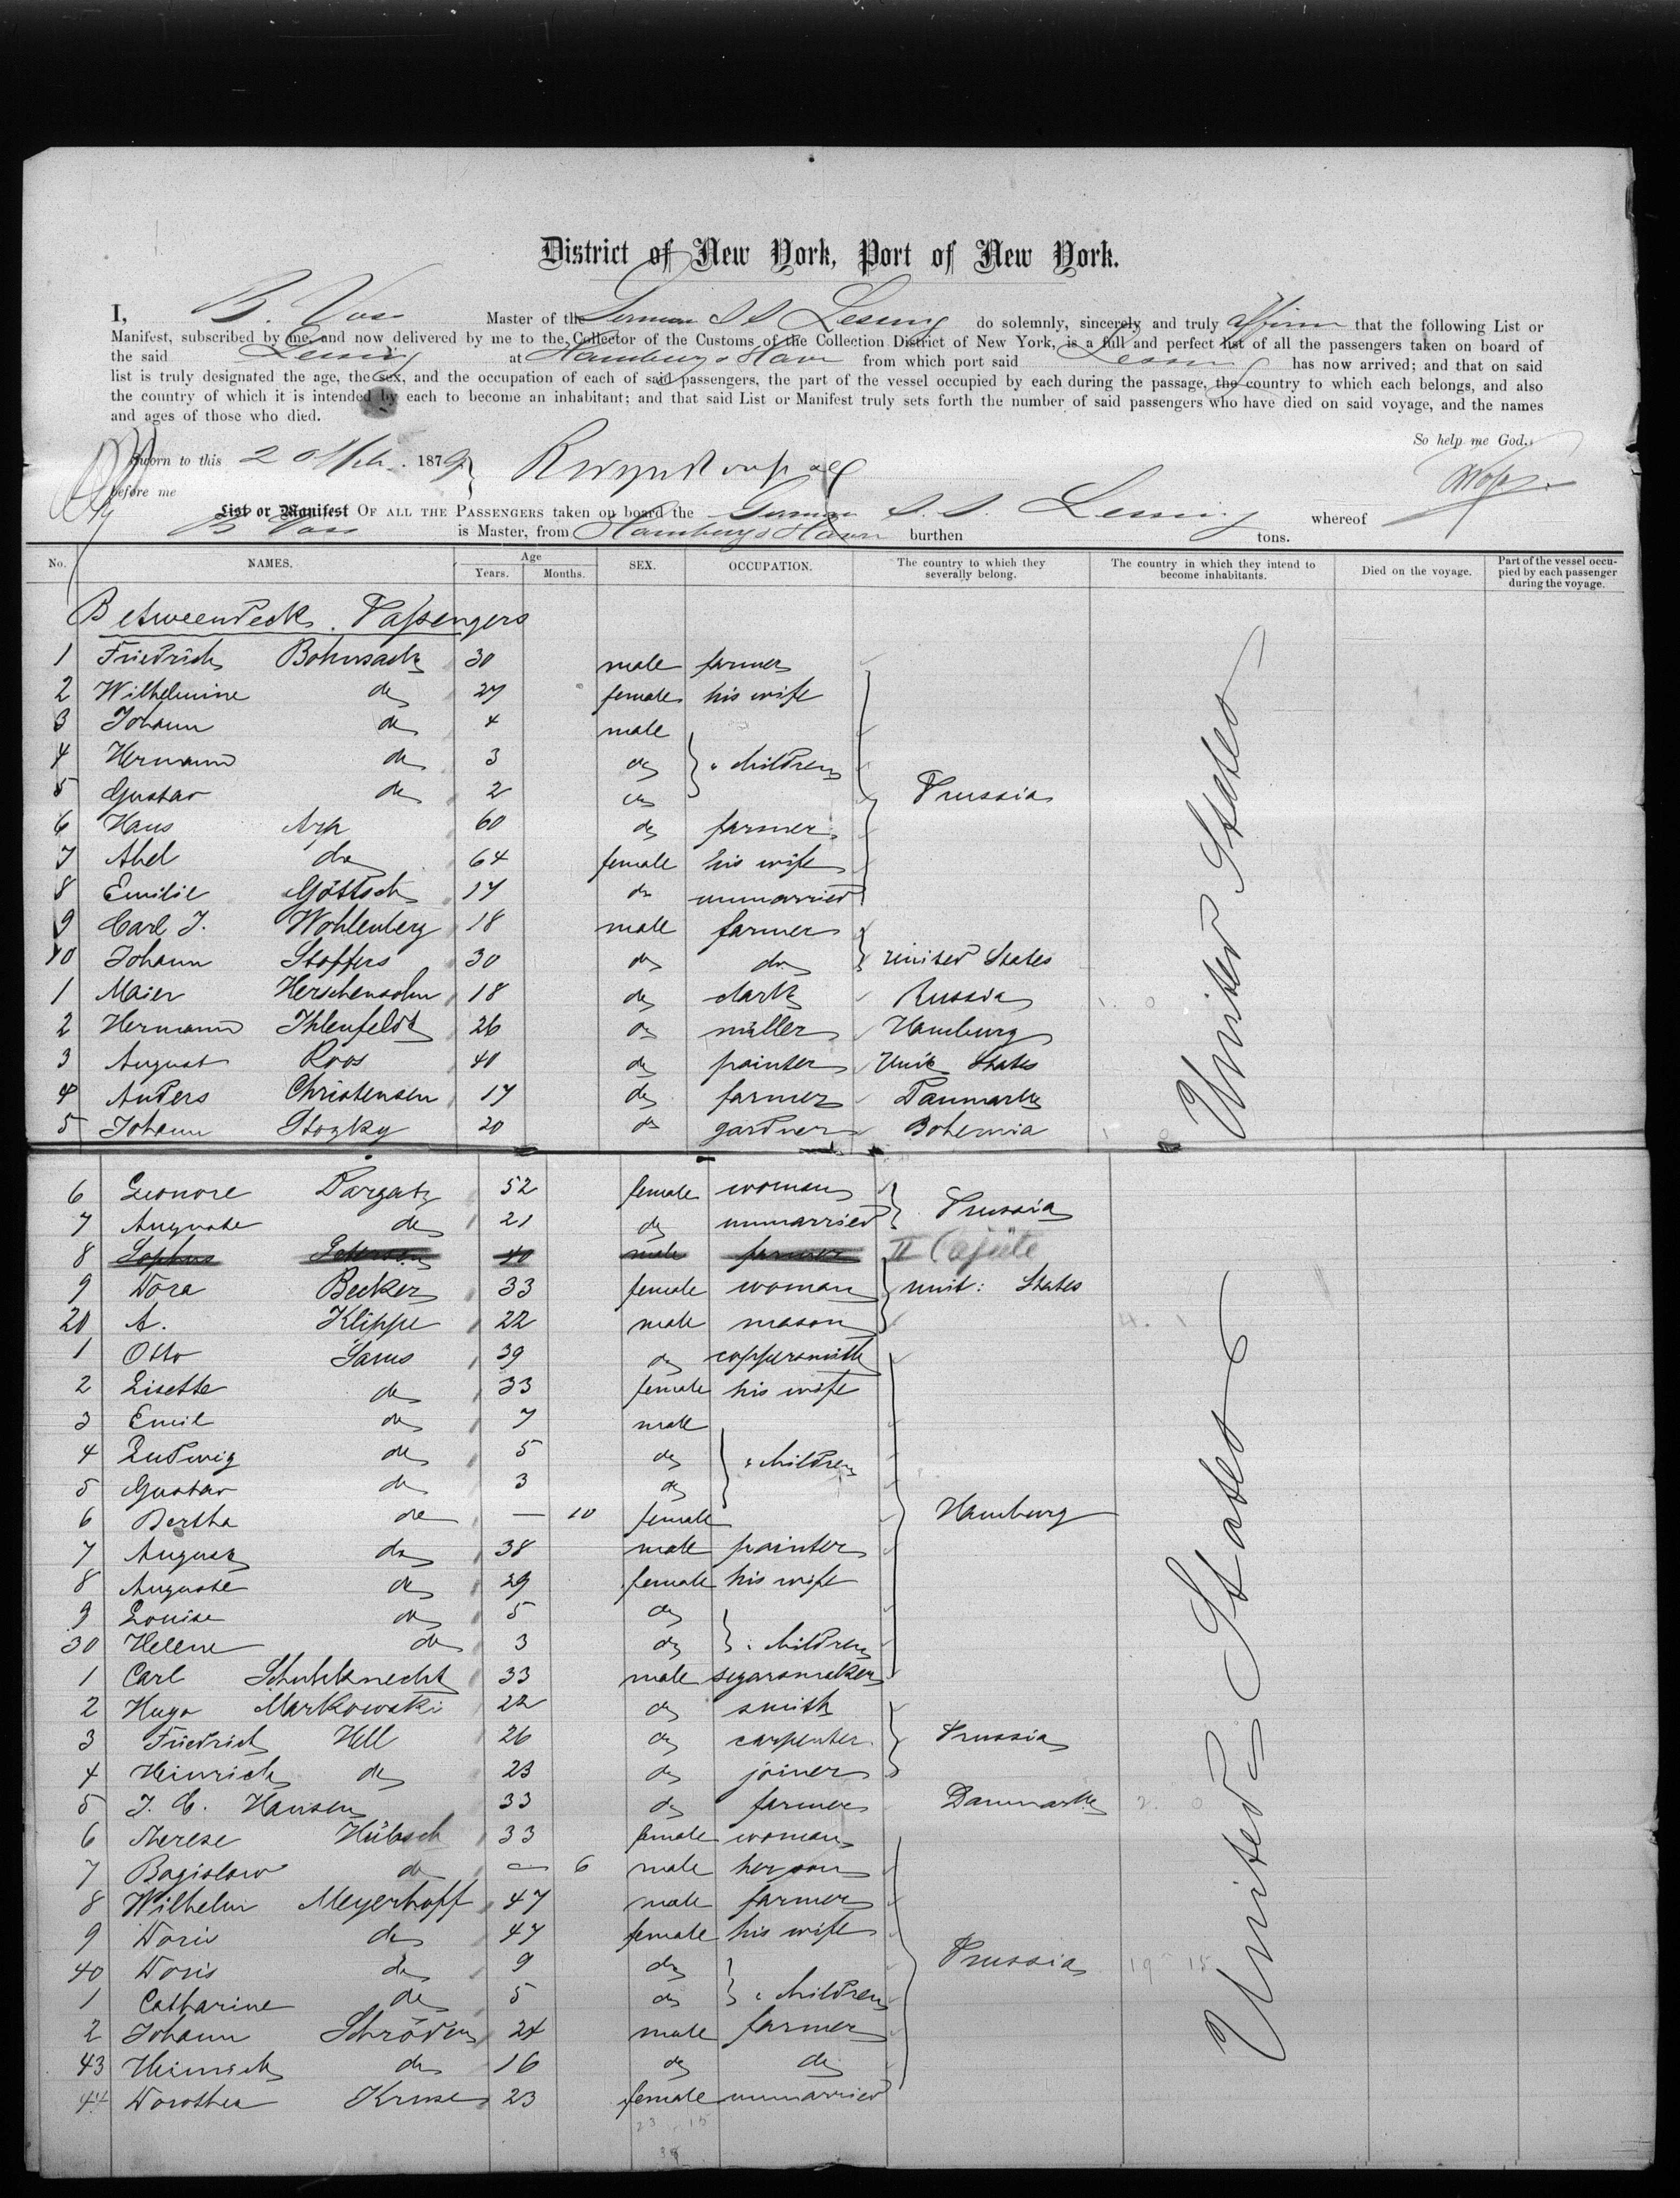 District of New York, Port of New York.
I, B. Voss Master of the German S S Lessing do solemnly, sincerely and truly affirm that the following List or
Manifest, subscribed by me, and now delivered by me to the Collector of the Customs of the Collection District of New York, is a full and perfect list of all the passengers taken on board of
the said Lessing at Hamburg & Havre from which port said Lessing has now arrived; and that on said
list is truly designated the age, the sex, and the occupation of each of said passengers, the part of the vessel occupied by each during the passage, the country to which each belongs, and also
the country of which it is intended by each to become an inhabitant; and that said List or Manifest truly sets forth the number of said passengers who have died on said voyage, and the names
and ages of those who died.
So help me God.
Sworn to this 1879
before me
Voss
List or Manifest OF ALL THE PASSENGERS taken on board the German S. S. Lessing whereof
B Voss is Master, from Hamburg & Havre burthen tons.
No. NAMES. Age Years. Months. SEX. OCCUPATION. The country to which they severally belong. The country in which they intend to become inhabitants. Died on the voyage. Part of the vessel occupied by each passenger during the voyage.
Betweendecks Passengers
1 Friedrich Bohnsack 30 male farmer
2 Wilhelmine do 27 female his wife
3 Johann do 4 male
4 Hermann do 3 do children
5 Gustav do 2 do Prussia
6 Hans Arp 60 do farmer
7 Abel do 64 female his wife
8 Emilie Göttsch 17 do unmarried
9 Carl J. Wohlenberg 18 male farmer
10 Johann Stoffers 30 do do united States
1 Maier Herschensohn 18 do clark Russia
2 Hermann Ihlenfeldt 26 do müller Hamburg
3 August Roos 40 do painter Unit States
4 Anders Christensen 17 do farmer Danmark
5 Johann 20 do gardner Bohemia
United States
6 Leonore Dargatz 52 female woman Prussia
7 Auguste do 21 do unmarried
8 Sophus Petersen 40 male farmer II Cajüte
9 Dora Becker 33 female woman unit: States
20 A. Klippe 22 male mason
1 Otto 39 do coppersmith
2 Lisette do 33 female his wife
3 Emil do 7 male
4 Ludwig do 5 do children
5 Gustav do 3 do
6 Bertha do — 10 female Hamburg
7 August do 38 male painter
8 Auguste do 29 female his wife
9 Louise do 5 do
30 Helene do 3 do children
1 Carl Schuhknecht 33 male segarsmaker
2 Hugo Markowski 22 do smith
3 Friedrich Hell 26 do carpenter Prussia
4 Heinrich do 23 do joiner
5 J. C. Hansen 33 do farmer Danmark
6 Therese Hübsch 33 female woman
7 Bogislaw do — 6 male her son
8 Wilhelm Meyerhoff 47 male farmer
9 Doris do 47 female his wife
40 Doris do 9 do Prussia
1 Catharine do 5 do children
2 Johann Schröder 24 male farmer
43 Heinrich do 16 do do
44 Dorothea Kruse 23 female unmarried
United States